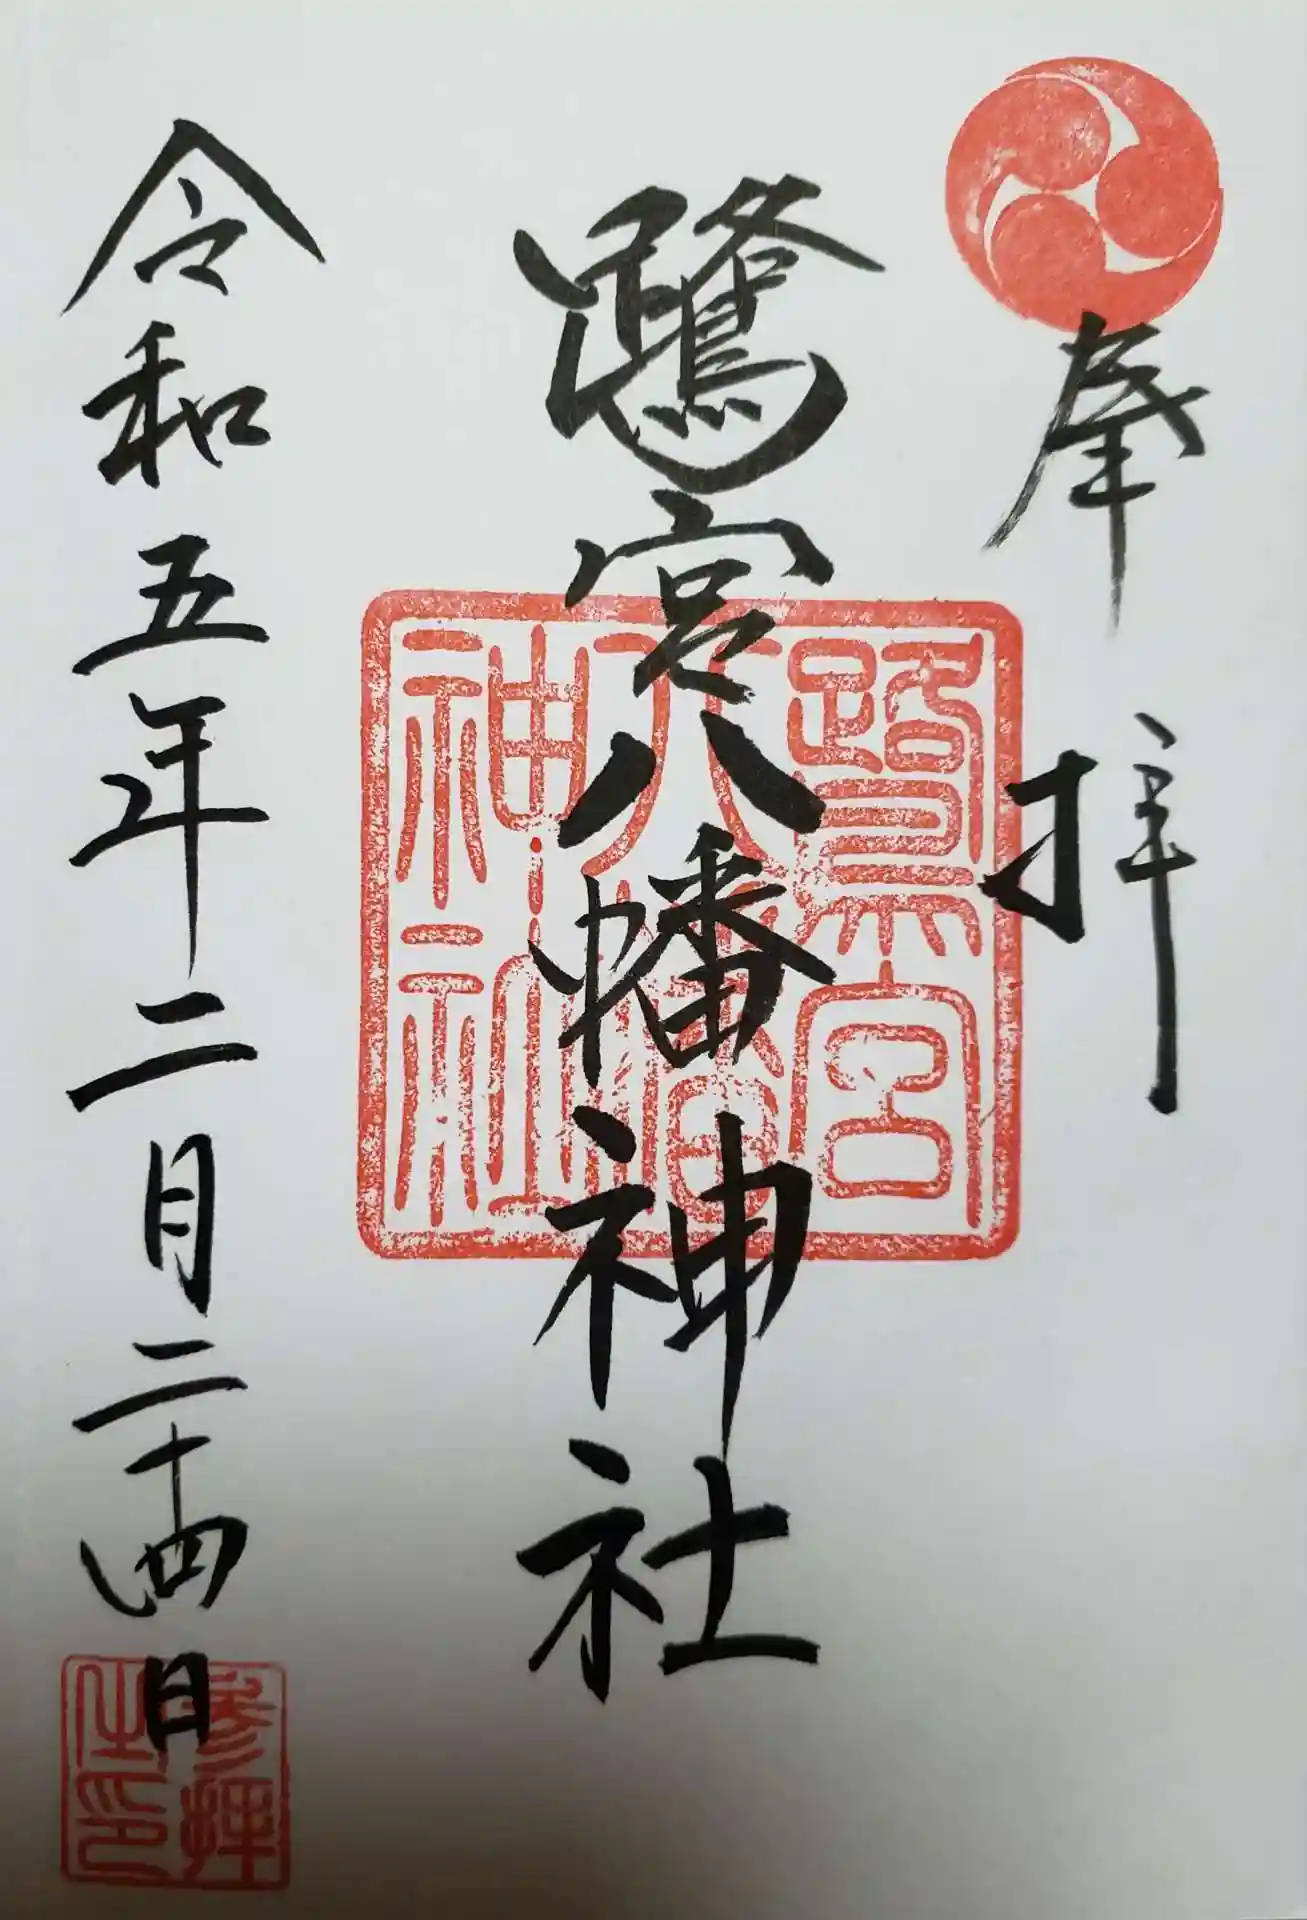 奉拝
鷺宮八幡神社
鷺宮
八幡
神社
令和五年二月二十四日
参拝
之印